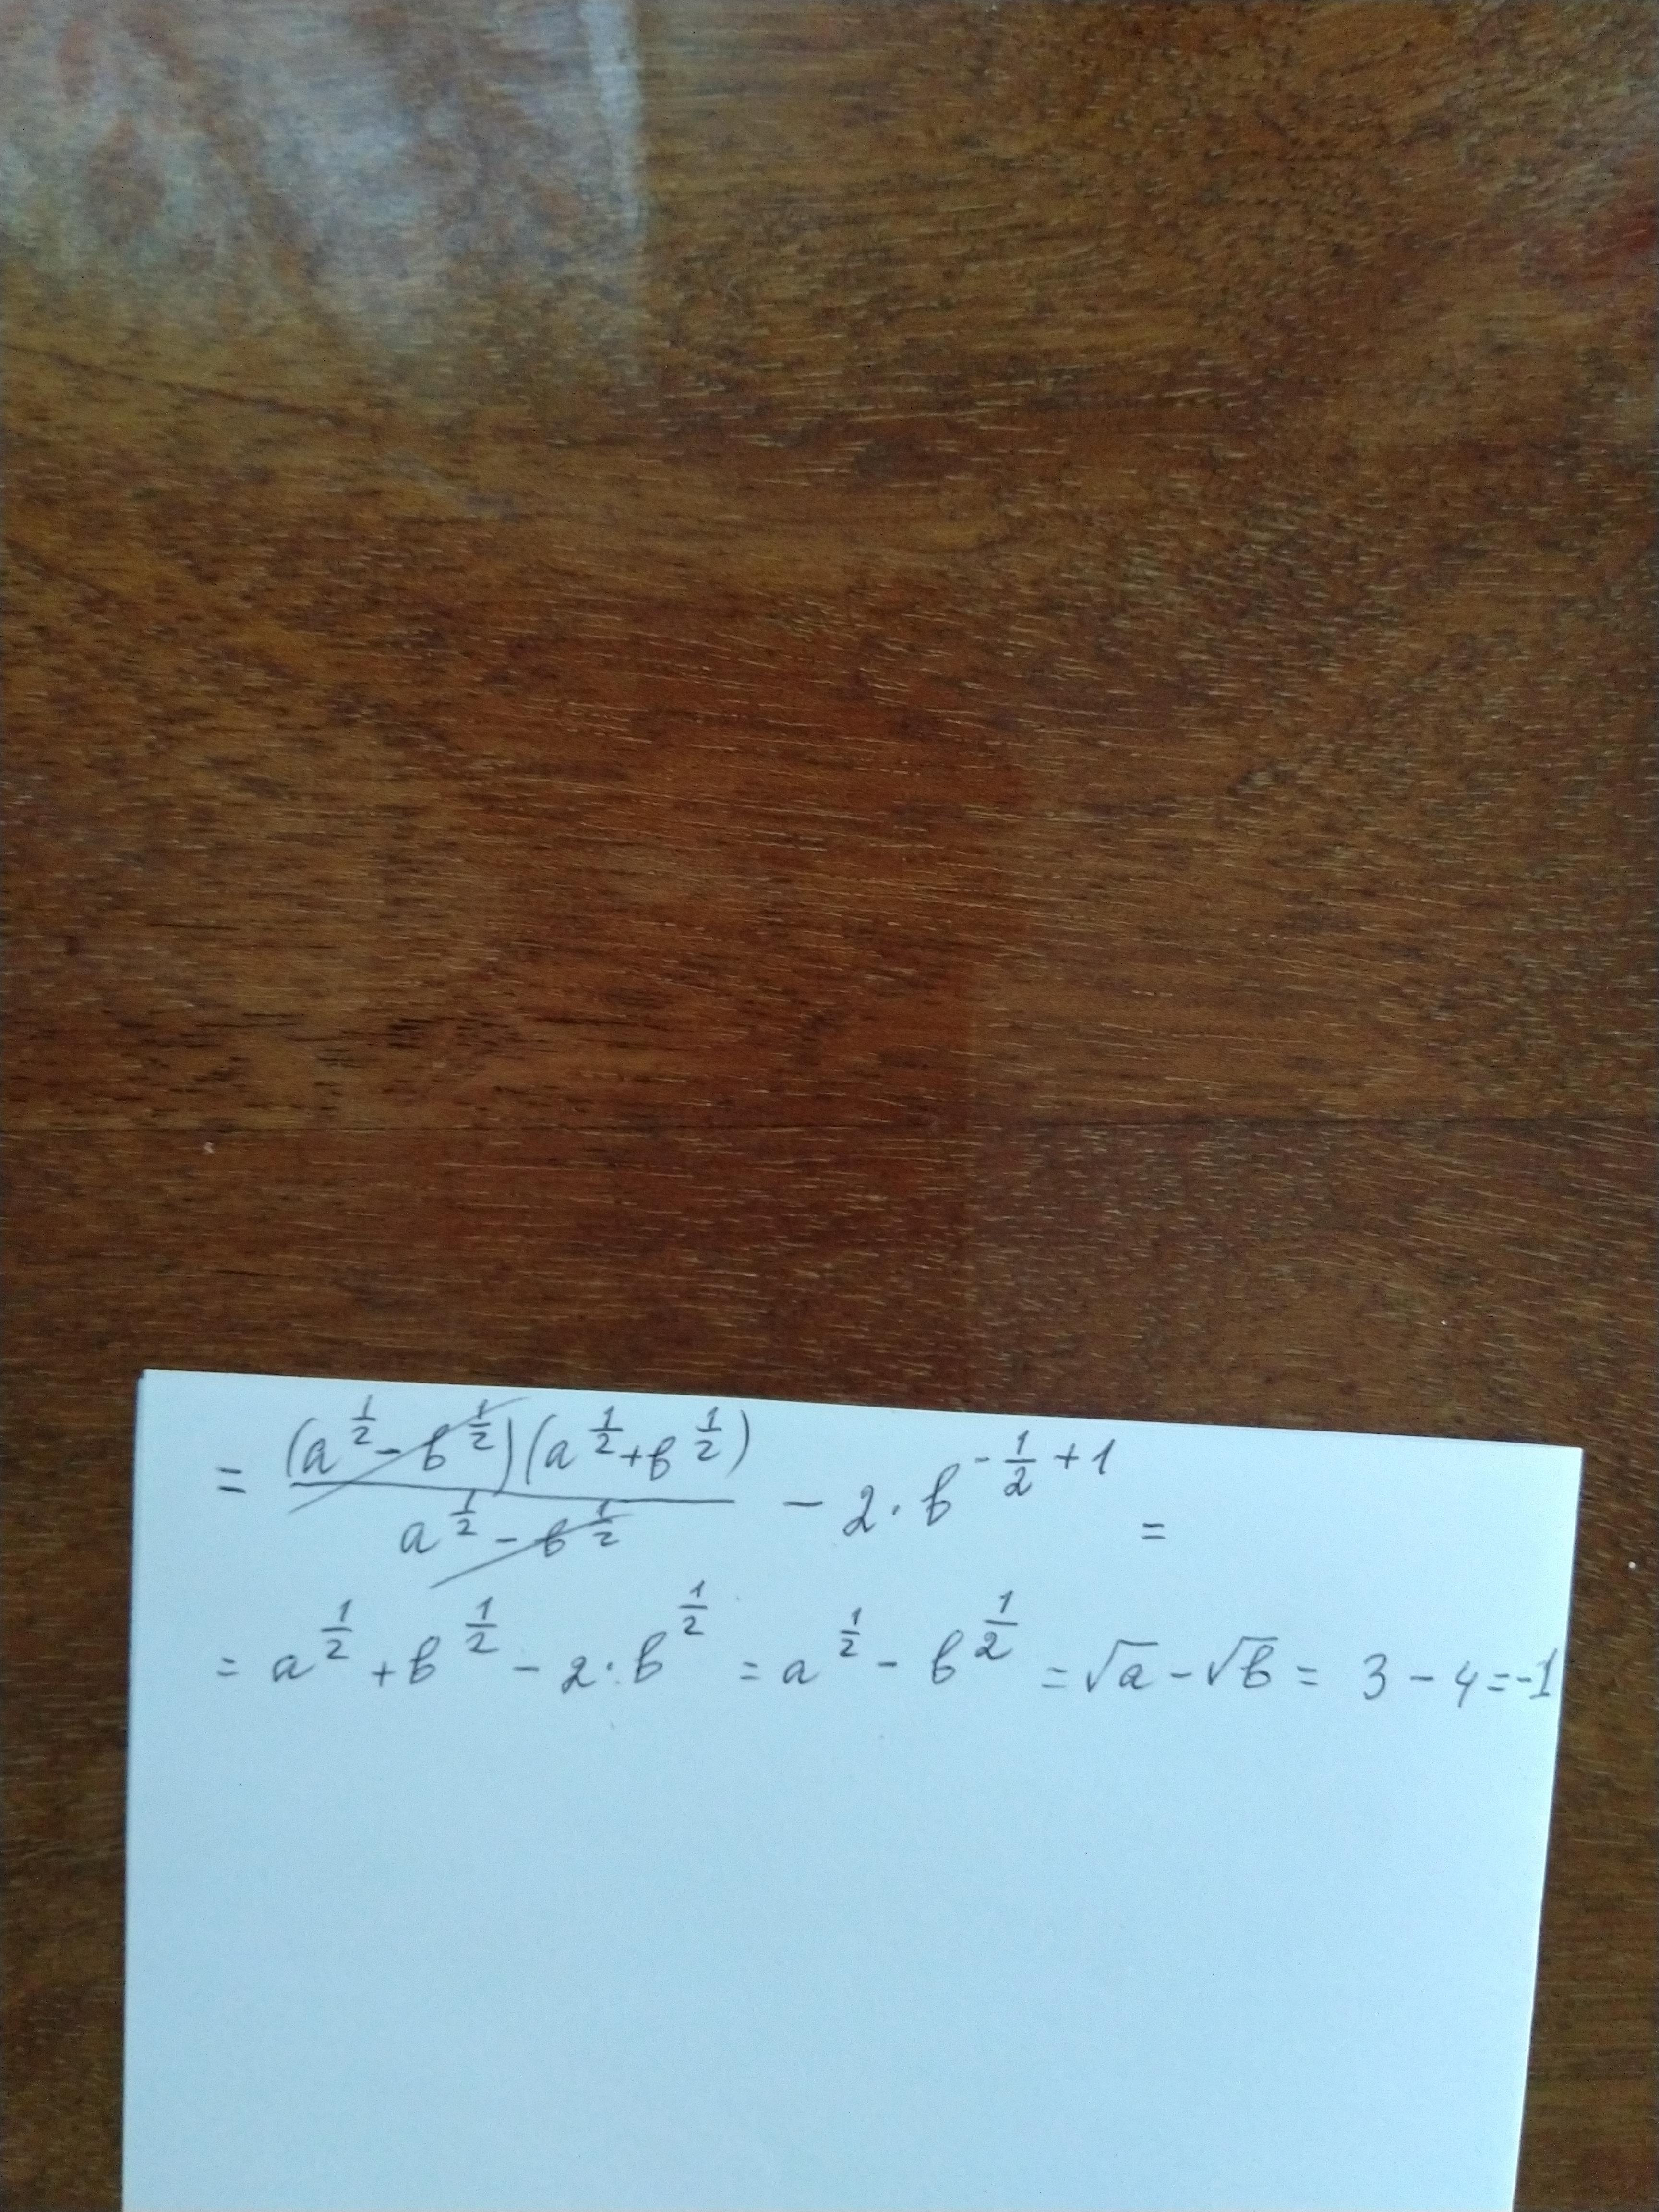 = (a^{1/2} - b^{1/2})(a^{1/2} + b^{1/2}) / (a^{1/2} - b^{1/2}) - 2 · b^{-1/2 + 1} =
= a^{1/2} + b^{1/2} - 2 · b^{1/2} = a^{1/2} - b^{1/2} = √a - √b = 3 - 4 = -1